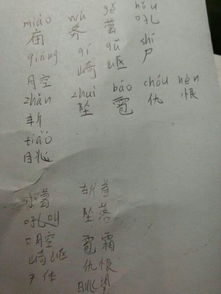 miáo wù gē hǒu
庙 务 菖 吼
qiāng qí qū shī
腔 崎 岖 尸
zhǎn zhuì báo chóu hèn
斩 坠 雹 仇 恨
tiào
眺
水菖 斩首
吼叫 坠落
口腔 雹霜
崎岖 仇恨
尸体 眺望